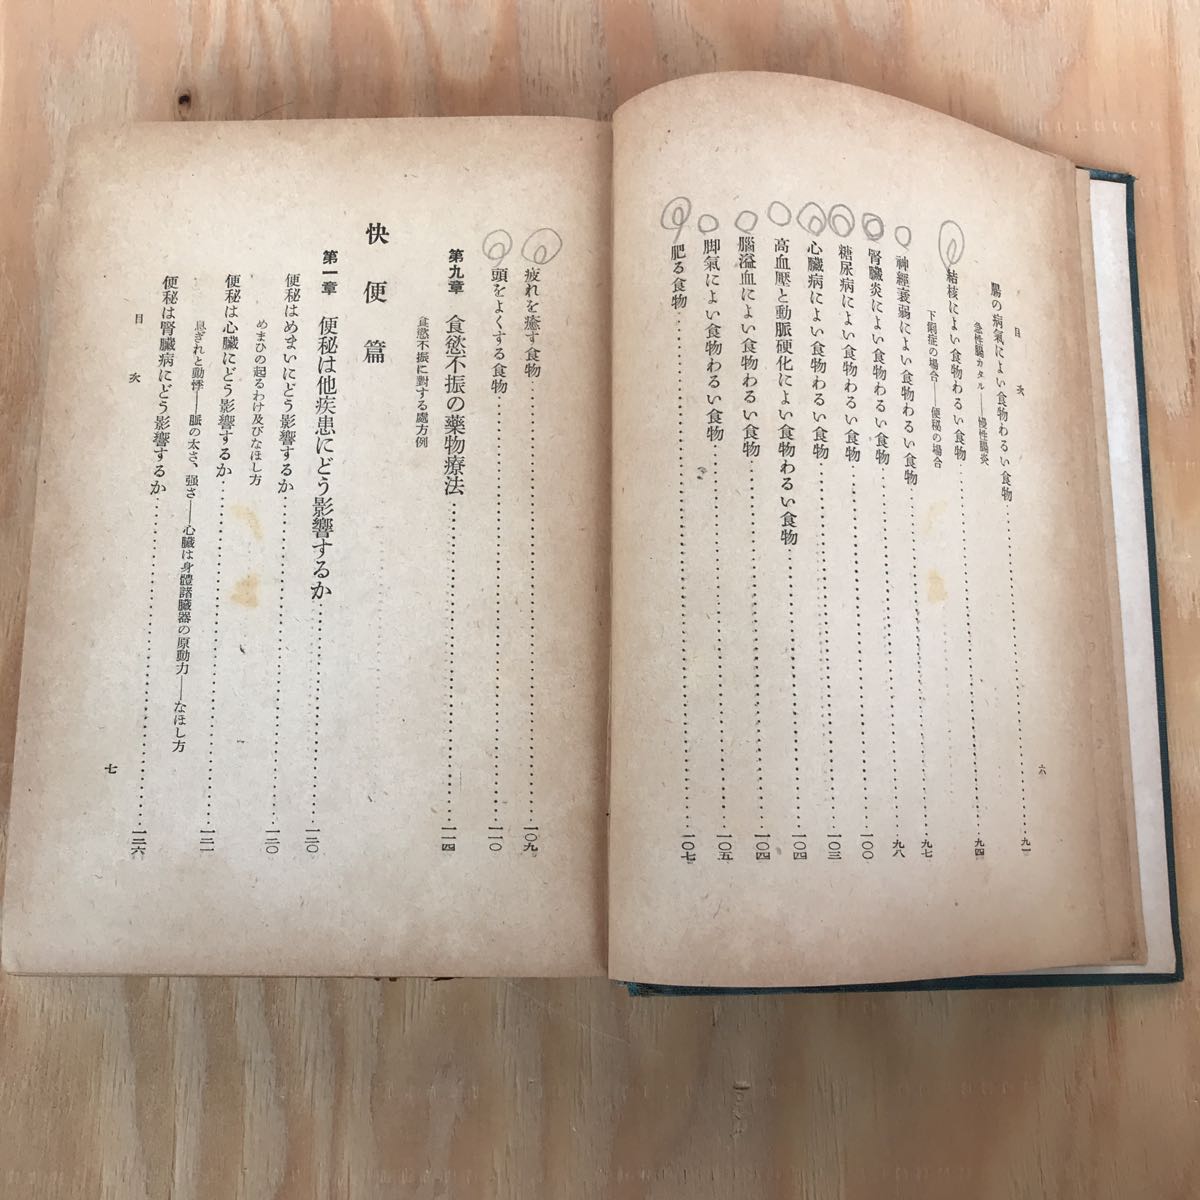 目次
六
腸の病氣によい食物わるい食物……九一
急性腸カタル——慢性腸炎
結核によい食物わるい食物……九四
下痢症の場合——便秘の場合……九七
神經衰弱によい食物わるい食物……九八
腎臟炎によい食物わるい食物……一〇〇
糖尿病によい食物わるい食物……一〇三
心臟病によい食物わるい食物……一〇四
高血壓と動脈硬化によい食物わるい食物……一〇四
腦溢血によい食物わるい食物……一〇四
脚氣によい食物わるい食物……一〇五
肥る食物……一〇七
疲れを癒す食物……一〇九
頭をよくする食物……一一〇
第九章 食慾不振の藥物療法……一一四
食慾不振に對する處方例
快便篇
第一章 便秘は他疾患にどう影響するか……一二〇
便秘はめまいにどう影響するか……一二〇
めまひの起るわけ及びなほし方
便秘は心臟にどう影響するか……一二一
息ぎれと動悸——脈の太さ、强さ——心臟は身體諸臟器の原動力——なほし方
便秘は腎臟病にどう影響するか……一二六
目次
七